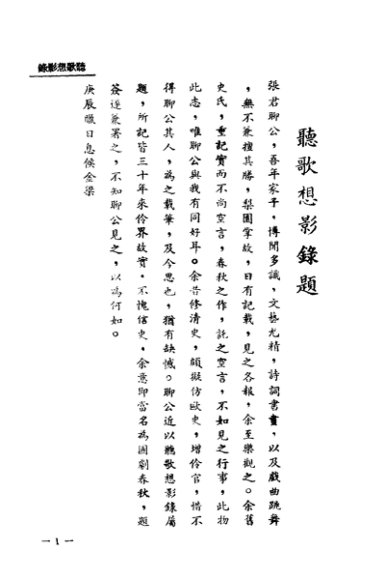 聽歌想影錄
聽歌想影錄題
張君聊公，吾年家子，博聞多識，文藝尤精，詩詞書畫，以及戲曲跳舞
，無不兼擅其勝，梨園掌故，日有記載，見之各報，余至樂觀之。余舊
史氏，重記實而不尚空言，春秋之作，託之空言，不如見之行事，此物
此志，唯聊公與我有同好耳。余昔修清史，頗擬仿歐史，增伶官，惜不
得聊公其人，為之載筆，及今思之，猶有缺憾。聊公近以聽歌想影錄屬
題，所記皆三十年來伶界故實，不愧信史，余意即當名為國劇春秋，題
簽遂兼署之，不知聊公見之，以為何如。
庚辰暖日息候金梁
— 1 —